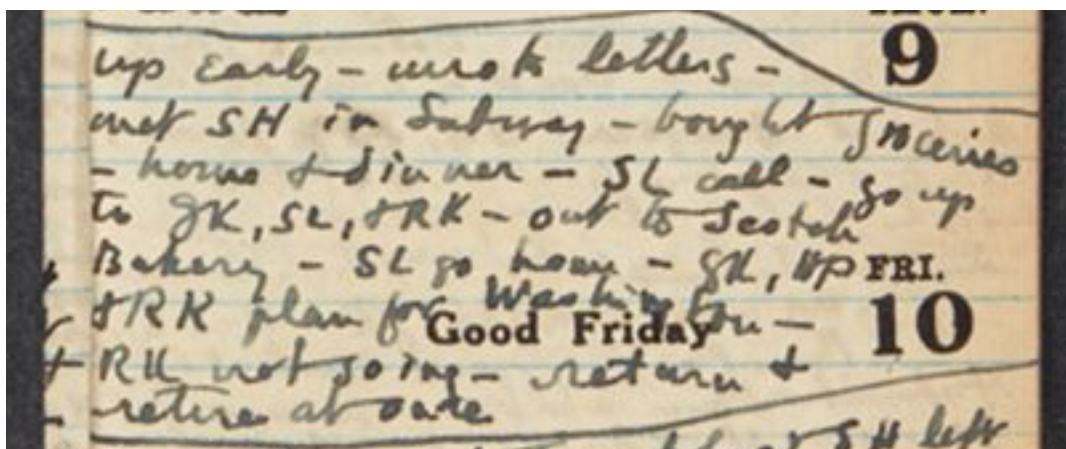 9
up early - wrote letters -
met SH in Subway - bought groceries
- home & dinner - SL call - go up
to JK, SL, & RK - out to Scotch
Bakery - SL go home - JK, HP
FRI.
& RK plan for Washington -
Good Friday
10
RK not going - return &
retire at once
SH left